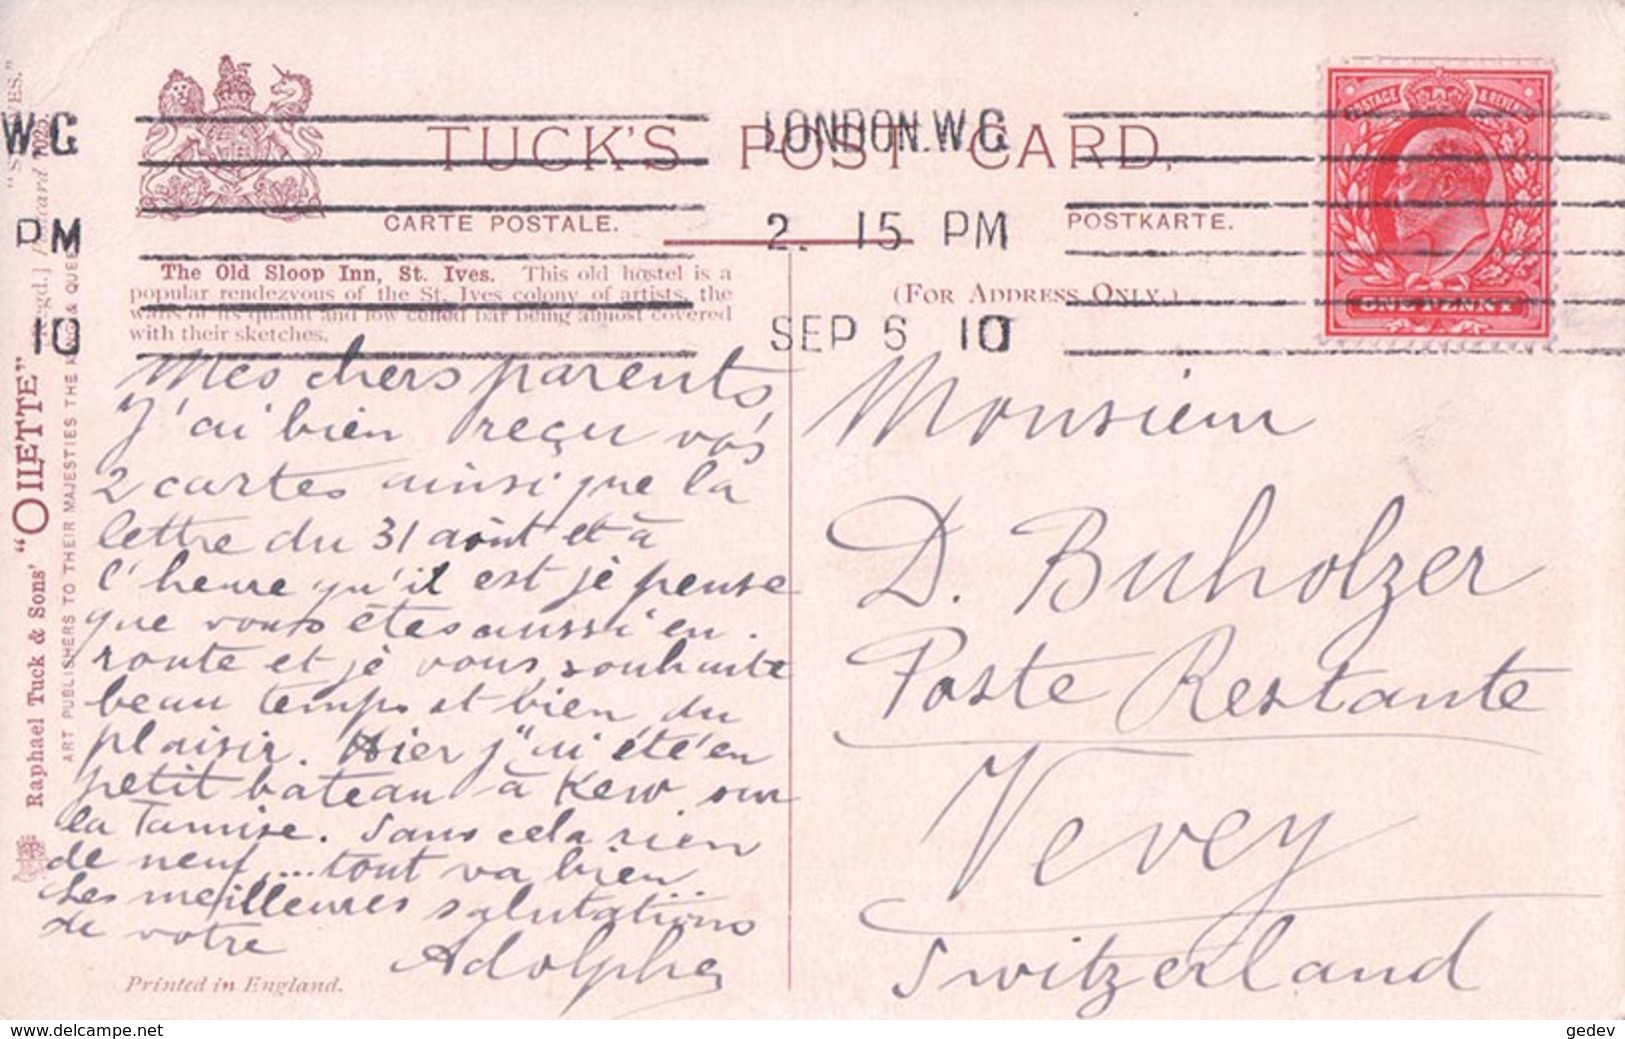 W.C LONDON.W.C
TUCK'S POST CARD.
CARTE POSTALE. POSTKARTE.
PM 2. 15 PM
10 SEP 6 10
POSTAGE & REVENUE
ONE PENNY
The Old Sloop Inn, St. Ives. This old hostel is a
popular rendezvous of the St. Ives colony of artists, the
walls of its quaint and low ceiled bar being almost covered
with their sketches.
(FOR ADDRESS ONLY.)
Mes chers parents,
J'ai bien reçu vos
2 cartes ainsi que la
lettre du 31 août et à
l'heure qu'il est je pense
que vous êtes aussi en
route et je vous souhaite
beau temps et bien du
plaisir. Hier j'ai été en
petit bateau à Kew sur
la Tamise. Sans cela rien
de neuf, ... tout va bien
Les meilleures salutations
de votre
Adolphe
Monsieur
D. Buholzer
Poste Restante
Vevey
Switzerland
Printed in England.
Raphael Tuck & Sons' "OILETTE" [Regd.] 7025.
"ST. IVES."
ART PUBLISHERS TO THEIR MAJESTIES THE KING & QUEEN
www.delcampe.net
gedev